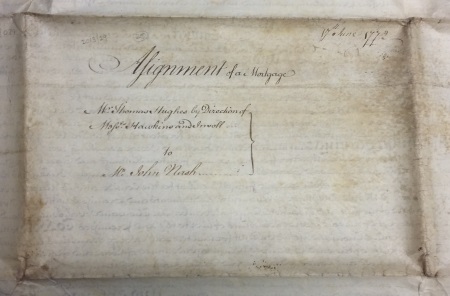 17th June 1772
Assignment of a Mortgage
Mr. Thomas Hughes by Direction of
Messrs. Hawkins and
to
Mr. John Nash